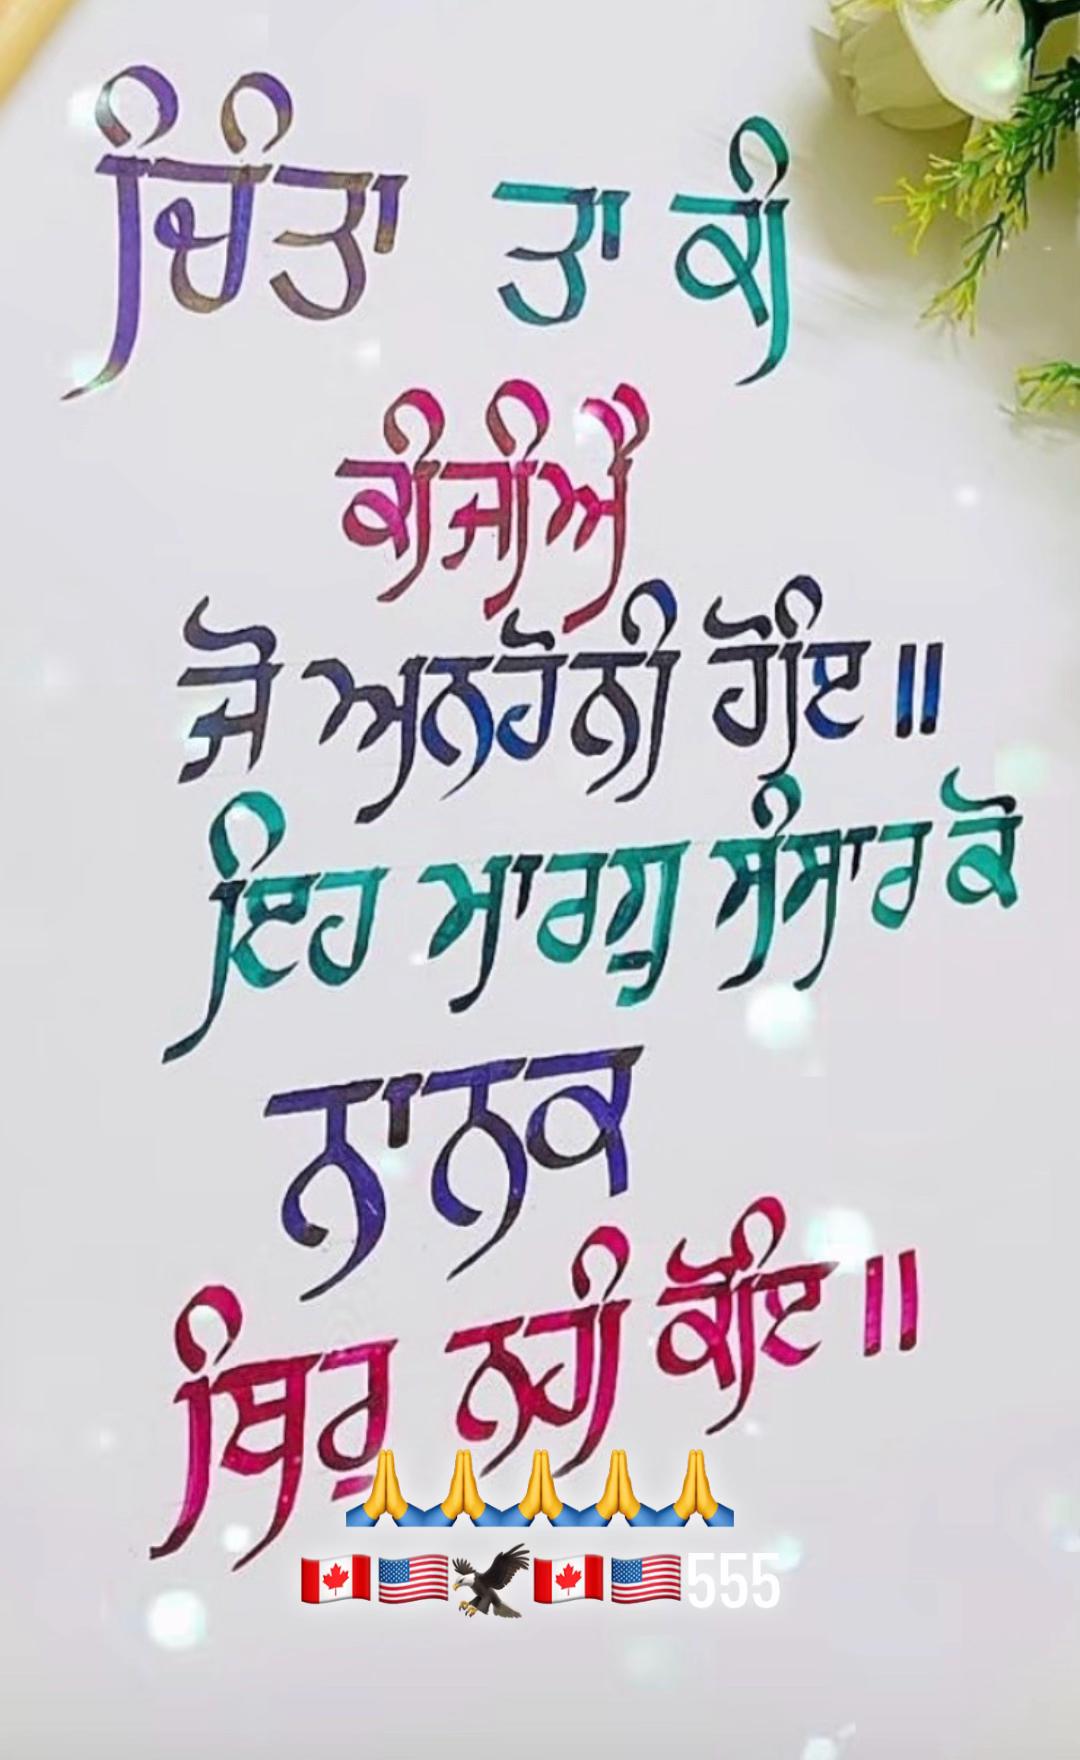 ਚਿੰਤਾ ਤਾ ਕੀ
ਕੀਜੀਐ
ਜੋ ਅਨਹੋਨੀ ਹੋਇ॥
ਇਹ ਮਾਰਗੁ ਸੰਸਾਰ ਕੋ
ਨਾਨਕ
ਥਿਰੁ ਨਹੀ ਕੋਇ॥
🙏🙏🙏🙏🙏
🇨🇦🇺🇸🦅🇨🇦🇺🇸555